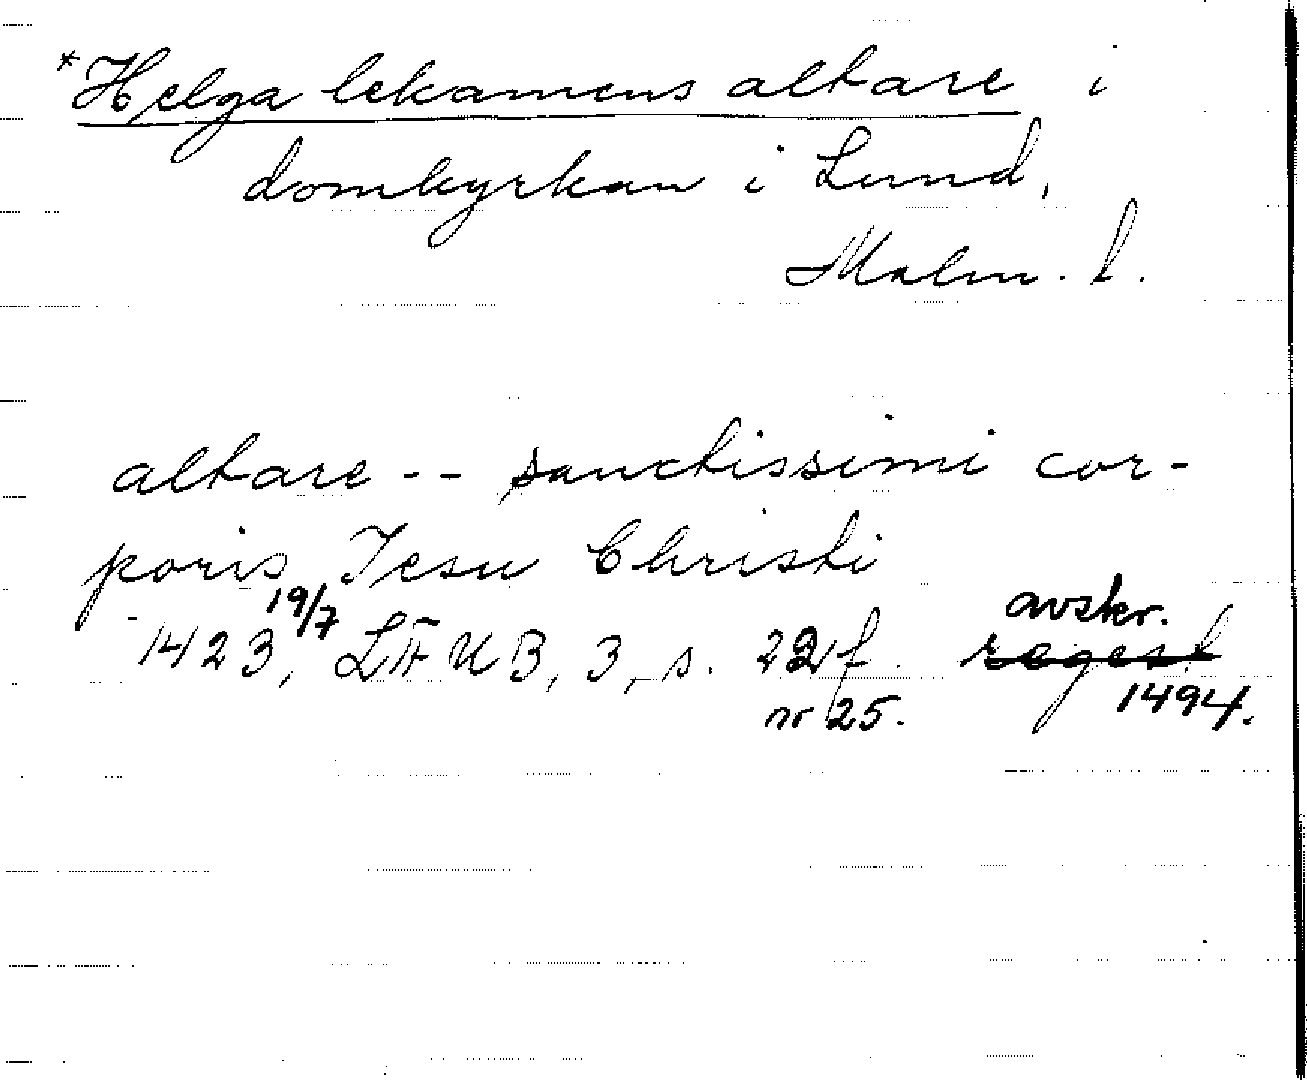 *Helga lekamens altare i
domkyrkan i Lund,
Malm. l.
altare -- sanctissimi cor-
poris Jesu Christi
1423 19/7, LÄUB, 3, s. 22 f. avskr.
nr 25. 1494.